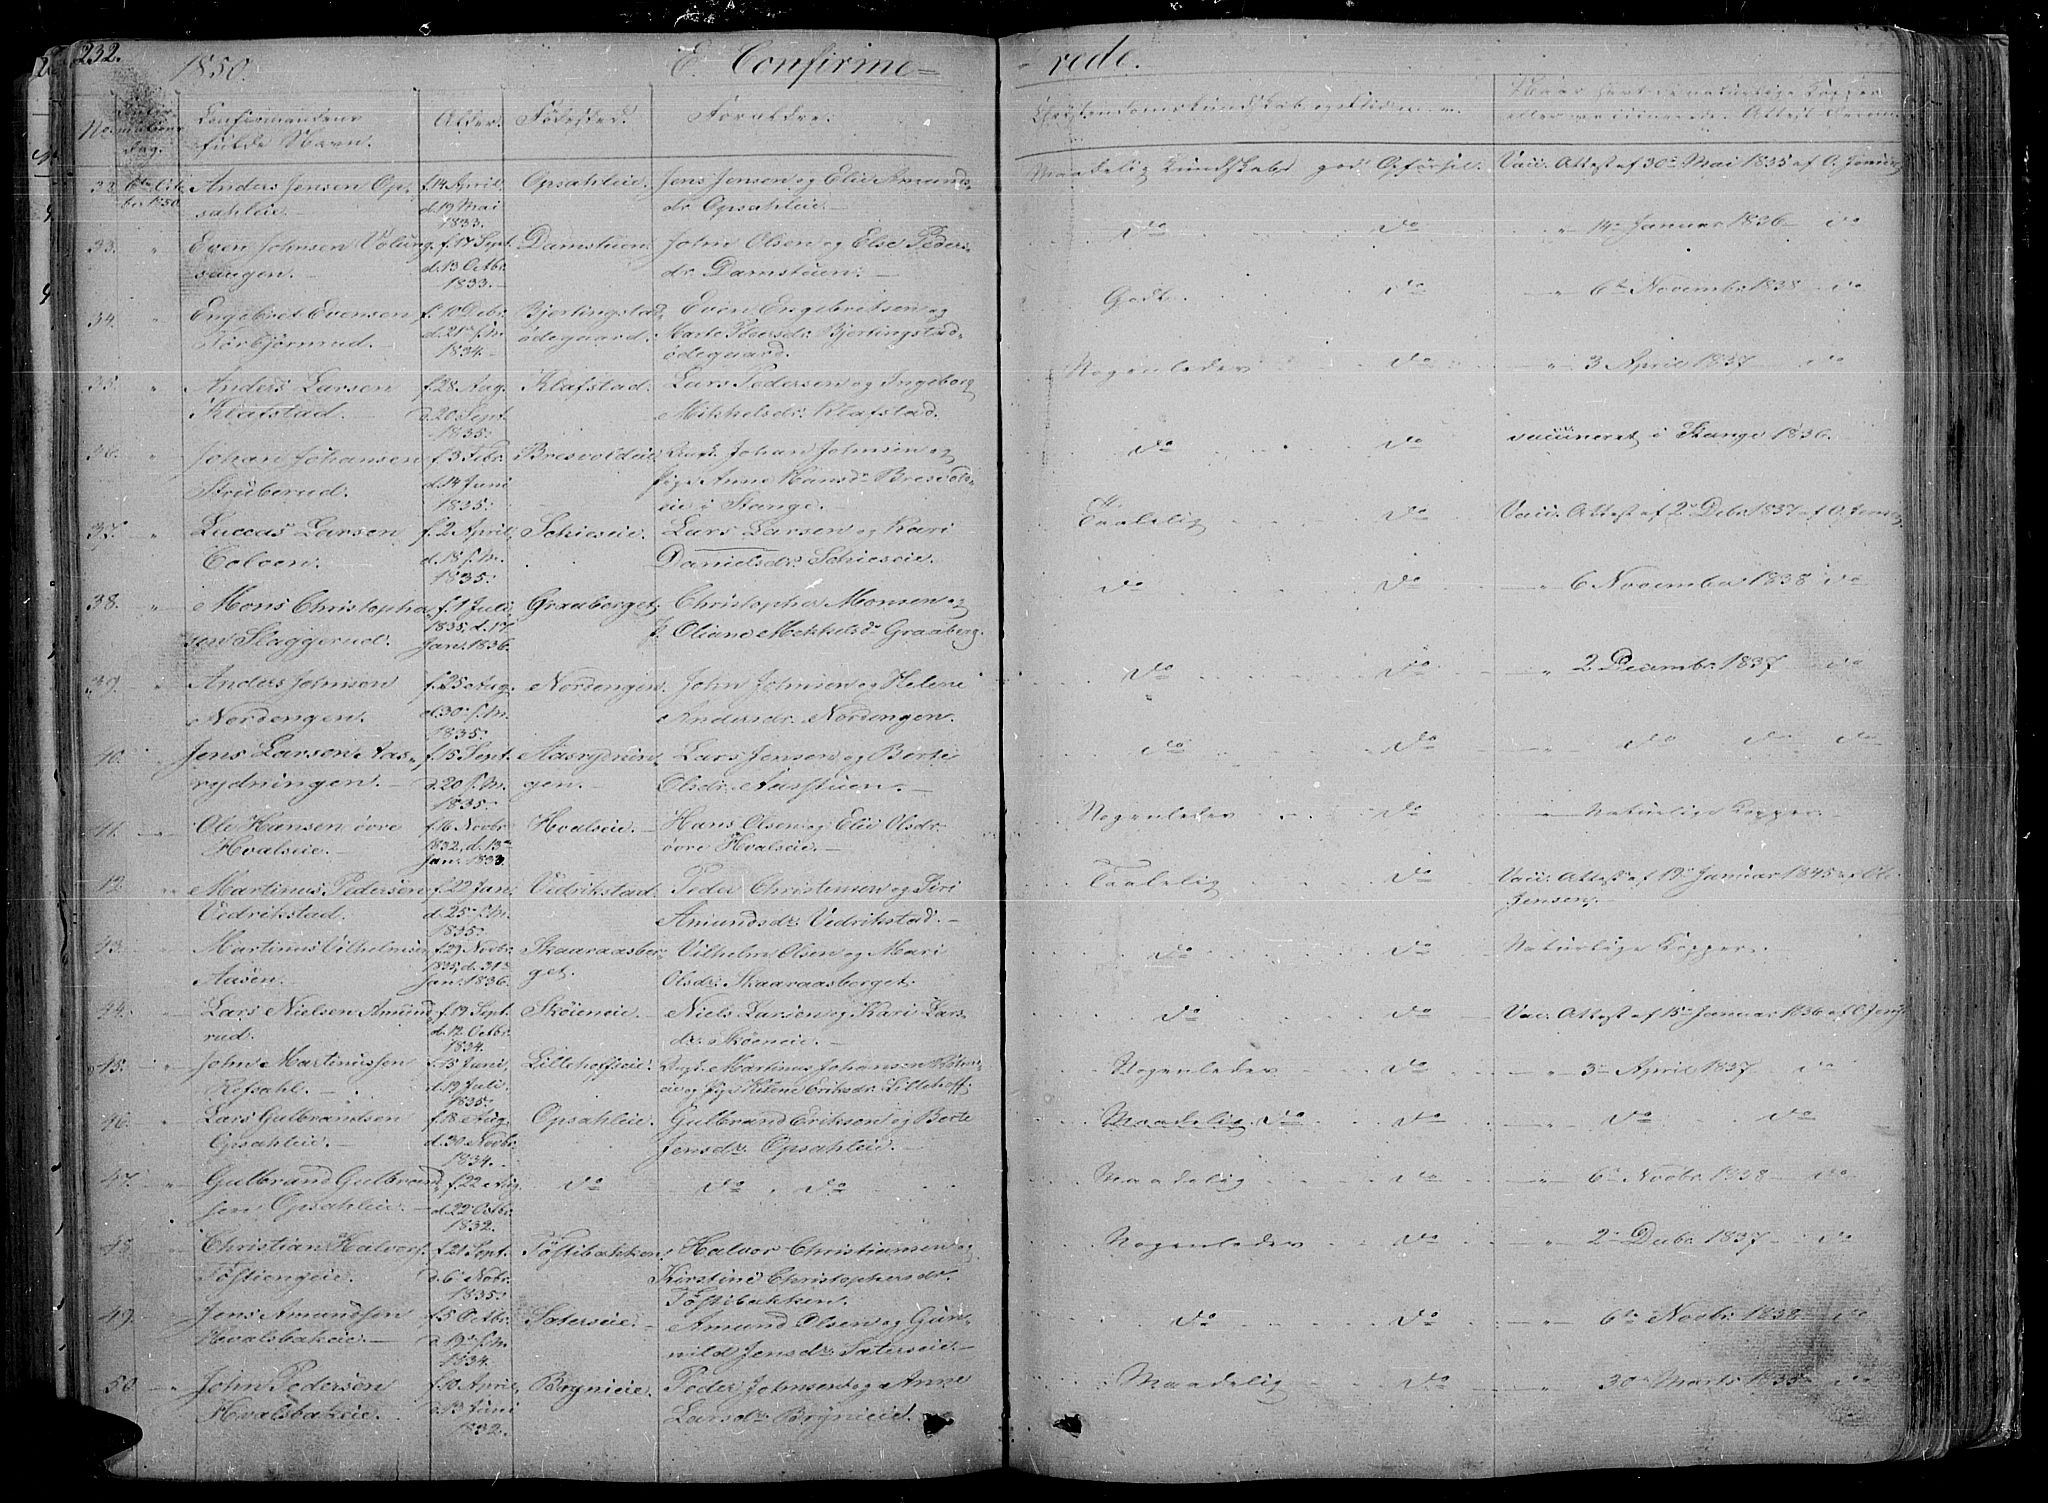 232.
1850.
E. Confirme=
=rede.
No.
Dag.
Confirmandens fulde Navn.
Alder.
Fødested.
Forældre.
Christendomskundskab og Flid
32. Anders Jensen Op=
sahleie.
f. 14 April,
d. 19 Mai
1833.
Opsahleie.
Jens Jensen og Elie Amunds=
dr. Opsahleie.
Maadelig Kundskab, god Opførsel.
Vacc. Attest af 30te Mai 1835 af O. Jensen
33. " Even Johnsen Volung=
saugen.
f. 17 Sept.
d. 13 Octbr.
1833.
Damstuen.
John Olsen og Else Peders=
dr. Damstuen.
do
do
" 14de Januar 1836 do
34. " Engebret Evensen
Torbjørnrud.
f. 10 Debr.
d. 21de s. M.
1834.
Bjertingstad
ødegaard.
Even Engebretsen og
Marte Pedersdr. Bjertingstad=
ødegaard.
Godt.
do
" 6te Novembr 1838 do
35. " Anders Larsen
Klafstad.
f. 28 Aug.
d. 20 Sept.
1835.
Klafstad.
Lars Pedersen og Ingeborg
Mikkelsdr. Klafstad.
Nogenledes
do
" 3 April 1837 do
36. " Johan Johansen
Struberud.
f. 3 Febr.
d. 14 Juni
1835.
Bresvoldeie.
Ungk. Johan Johnsen og
Pige Anne Hansdr. Bresvold=
eie i Stange.
do
do
vaccineret i Stange 1836.
37. " Luccas Larsen
Coloen.
f. 2 April,
d. 18 s. M.
1835.
Schieseie.
Lars Larsen og Kari
Danielsdr. Schieseie.
Taalelig
do
Vacc. Attest af 2de Debr 1837 af O. Jensen
38. " Mons Christopher=
sen Slaggerud.
f. 1 Juli
1835, d. 17
Jan. 1836.
Graaberget.
Christopher Monsen og
P. Oliane Mikkelsdr. Graaberg.
do
do
" 6 Novembr 1838 do
39. " Anders Johnsen
Nordengen.
f. 25 Aug.
d. 30te s. M.
1835.
Nordengen.
John Johnsen og Helene
Andersdr. Nordengen.
do
do
" 2 Decembr. 1837 do
40. Jens Larsen Aas=
rydningen.
f. 15 Sept.
d. 20 s. M.
1835.
Aasrydnin
gen.
Lars Jensen og Berte
Olsdr. Aasstuen.
do
do
" do do do
41. Ole Hansen øvre
Hvalseie.
f. 16 Novbr.
1832, d. 13de
Jan. 1833.
Hvalseie.
Hans Olsen og Elie Olsdr.
øvre Hvalseie.
Nogenledes
do
" Naturlige Kopper.
42. Martinus Pedersen
Vidrikstad.
f. 22 Juni
d. 25de s. M.
1835.
Vidrikstad.
Peder Christensen og Siri
Amundsdr. Vedrikstad.
Taalelig
do
Vacc. Attest af 19de Januar 1845 af Ole
Jensen.
43. Martinus Vilhelmsen
Aasen.
f. 29 Novbr.
1835, d. 31te
Jan. 1836.
Skaaraasber=
get.
Vilhelm Olsen og Mari
Olsdr. Skaaraasberget.
do
do
Naturlige Kopper.
44. Lars Nielsen Amund
rud.
f. 19 Sept.
d. 12 Octbr.
1834.
Skøieneie.
Niels Larsen og Kari Lars=
dr. Skøeneie.
do
do
Vacc. Attest af 15de Januar 1836 af O. Jensen
45. John Martinussen
Refsahl.
f. 15 Juni,
d. 19 Juli.
1835.
Lillehoffseie.
Ungk. Martinus Johansen
eie og Pige Helene Eriksdr. Lillehoff.
Nogenledes
do
" 3de April 1837 do
46. Lars Gulbrandsen
Opsahleie.
f. 18 Aug.
d. 30 Novbr.
1834.
Opsahleie.
Gulbrand Eriksen og Berte
Jensdr. Opsahleie.
Maadelig do
do
" do do
47. Gulbrand Gulbrand
sen Opsahleie.
f. 22 Aug.
d. 22 Octbr.
1832.
do
do do
Maadelig
do
" 6te Novbr 1838 do
48. Christian Halvors.
Tøftiengeie.
f. 21 Sept.
d. 6te Nobr.
1835.
Tøftibakken.
Halvor Christiansen og
Kirstine Christophersdr.
Tøftibakken.
Nogenledes
do
" 2de Debr 1837 do
49. Jens Amundsen
Hvalsbakeie.
f. 5 Octbr.
d. 19de s. M.
1834.
Saterseie.
Amund Olsen og Gun=
nild Jensdr. Saterseie.
do
do
" 6te Novbr 1838 do
50. John Pedersen
Hvalsbakeie.
f. 10 April,
d. 13 Juni
1832.
Brynieie.
Peder Johnsen og Anne
Larsdr. Brynieie.
Maadelig
do
" 30te Marts 1835 do